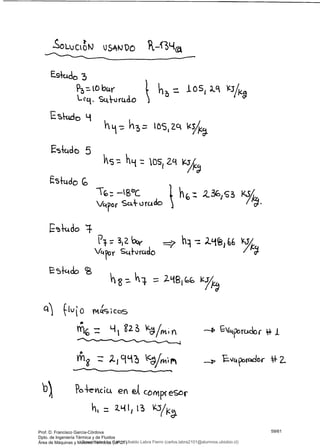 SOLUCIÓN USANDO R-134a
Estado 3
P3 = 10 bar
Líq. Saturado
h3 = 105,29 kJ/kg
Estado 4
h4 = h3 = 105,29 kJ/kg
Estado 5
h5 = h4 = 105,29 kJ/kg
Estado 6
T6 = -18ºC
Vapor Saturado
h6 = 236,53 kJ/kg.
Estado 7
P7 = 3,2 bar
Vapor Saturado
⇒ h7 = 248,66 kJ/kg
Estado 8
h8 = h7 = 248,66 kJ/kg
a) flujo másicos
ṁ6 = 4,823 kg/min → Evaporador # 1
ṁ8 = 2,943 kg/min → Evaporador # 2
b) Potencia en el compresor
h1 = 241,13 kJ/kg
Prof. D. Francisco García-Córdova
Dpto. de Ingeniería Térmica y de Fluidos
Área de Máquinas y Motores Térmicos (UPCT)
59/61